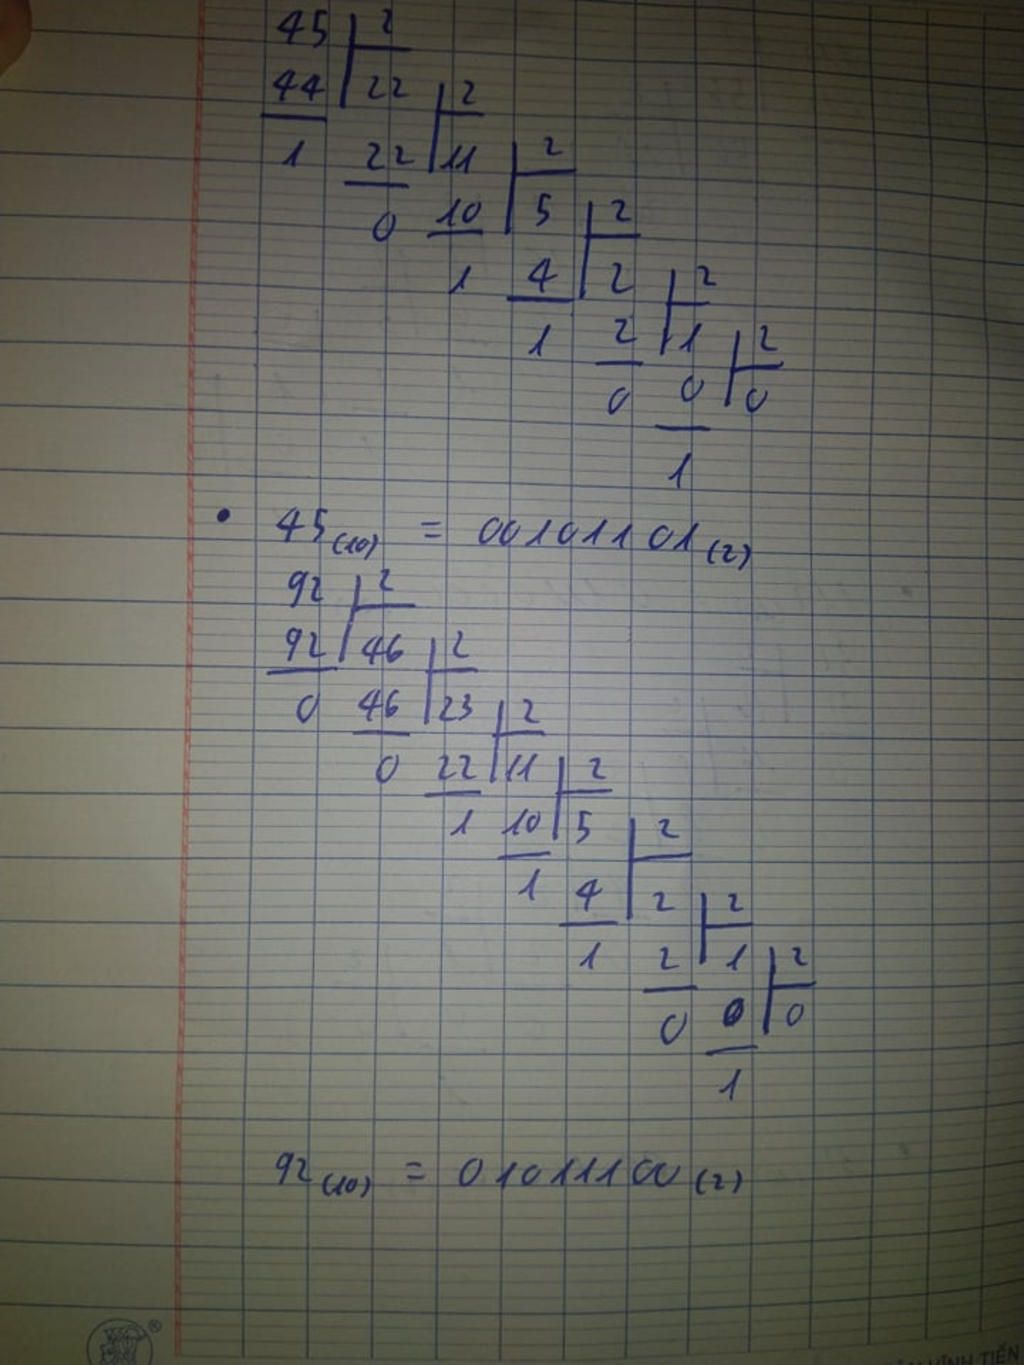 45 2
44 22 2
1 22 11 2
0 10 5 2
1 4 2 2
1 2 1 2
0 0 0
1
• 45(10) = 00101101(2)
92 2
92 46 2
0 46 23 2
0 22 11 2
1 10 5 2
1 4 2 2
1 2 1 2
0 0 0
1
92(10) = 01011100(2)
®
VĨNH TIẾN